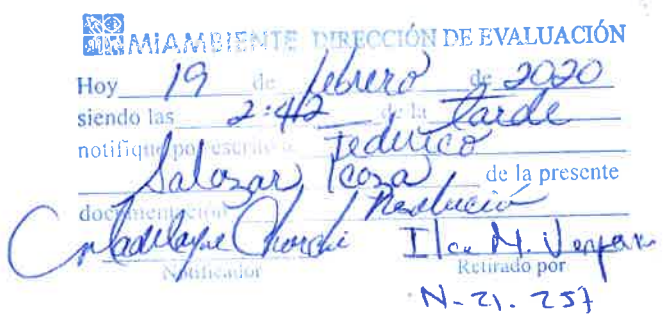 MIAMBIENTE DIRECCIÓN DE EVALUACIÓN
Hoy 19 de febrero de 2020
siendo las 2:42 de la tarde
notifique por escrito a Federico
Salazar Icaza de la presente
documentación Resolución
Notificador Retirado por
N-21-257